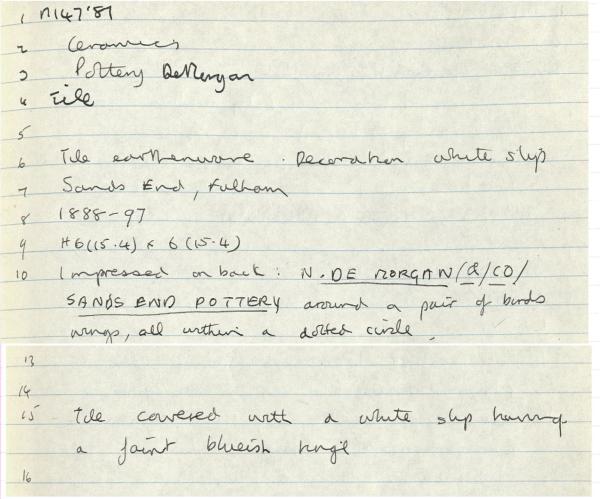 1 M147'87
2 Ceramics
3 Pottery De Morgan
4 Tile
5
6 Tile earthenware. Decoration white slip
7 Sands End, Fulham
8 1888-97
9 H6(15.4) x 6(15.4)
10 Impressed on back: N. DE MORGAN/&/CO/
SANDS END POTTERY around a pair of birds
wings, all within a dotted circle.
13
14
15 Tile covered with a white slip having
a faint blueish tinge
16